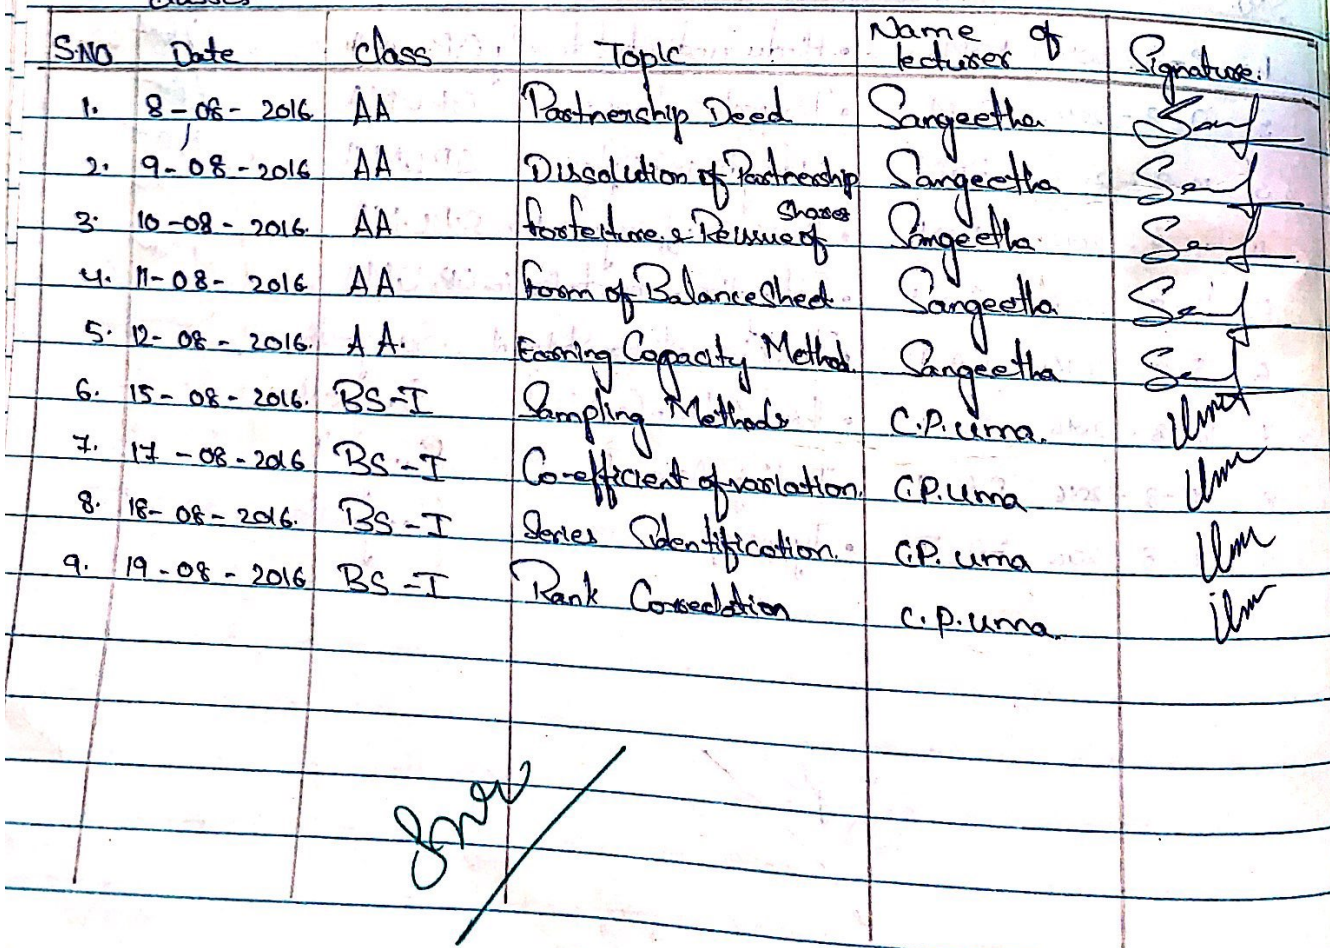 Classes
S.NO Date Class Topic Name of lecturer Signature
1. 8-08-2016 AA Partnership Deed Sangeetha
2. 9-08-2016 AA Dissolution of Partnership Sangeetha
3. 10-08-2016 AA forfeiture & Reissue of Shares Sangeetha
4. 11-08-2016 AA form of Balance Sheet Sangeetha
5. 12-08-2016. AA. Earning Capacity Method Sangeetha
6. 15-08-2016. BS-I Sampling Methods C.P.uma.
7. 17-08-2016 BS-I Co-efficient of variation. C.P.uma
8. 18-08-2016. BS-I Series Identification. C.P. uma
9. 19-08-2016 BS-I Rank Correlation C.P.uma.